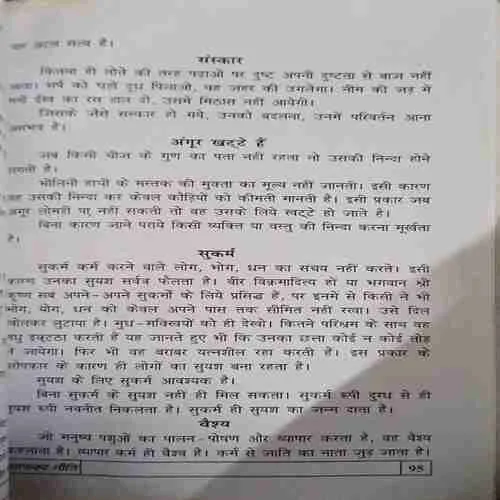 सत्य है।
संस्कार
कितना ही तोते की तरह पढ़ाओ पर दुष्ट अपनी दुष्टता से बाज नहीं
सर्प को चाहे दूध पिलाओ, वह जहर की उगलेगा। नीम की जड़ में
ईख का रस डाल दो, उसमें मिठास नहीं आयेगी।
जिसके जैसे संस्कार हो गये, उनको बदलना, उनमें परिवर्तन आना
असंभव है।
अंगूर खट्टे हैं
जब किसी चीज के गुण का पता नहीं रहता तो उसकी निन्दा होने
लगती है।
भीलिनी हाथी के मस्तक की मुक्ता का मूल्य नहीं जानती। इसी कारण
वह उसकी निन्दा कर केवल कौड़ियों को कीमती मानती है। इसी प्रकार जब
अंगूर लोमड़ी पा नहीं सकती तो वह उसके लिये खट्टे हो जाते है।
बिना कारण जाने पराये किसी व्यक्ति या वस्तु की निन्दा करना मूर्खता
है।
सुकर्म
सुकर्म कर्म करने वाले लोग, भोग, धन का संचय नहीं करते। इसी
कारण उनका सुयश सर्वत्र फैलता है। वीर विक्रमादित्य हो या भगवान श्री
कृष्ण सब अपने-अपने सुकर्मों के लिये प्रसिद्ध हैं, पर इनमें से किसी ने भी
भोग, योग, धन को केवल अपने पास तक सीमित नहीं रखा। उसे दिल
खोलकर लुटाया है। मुध-मक्खियों को ही देखो। कितने परिश्रम के साथ वह
मधु इकट्ठा करती हैं यह जानते हुए भी कि उनका छत्ता कोई न कोई तोड़
ले जायेगा। फिर भी वह बराबर यत्नशील रहा करती हैं। इस प्रकार के
परोपकार के कारण ही लोगों का सुयश बना रहता है।
सुयश के लिए सुकर्म आवश्यक है।
बिना सुकर्म के सुयश नहीं ही मिल सकता। सुकर्म रूपी दुग्ध से ही
सुयश रूपी नवनीत निकलता है। सुकर्म ही सुयश का जन्म दाता है।
वैश्य
जो मनुष्य पशुओं का पालन-पोषण और व्यापार करता है, वह वैश्य
कहलाता है। व्यापार कर्म ही वैश्य है। कर्म से जाति का नाता जुड़ जाता है।
चाणक्य नीति
95